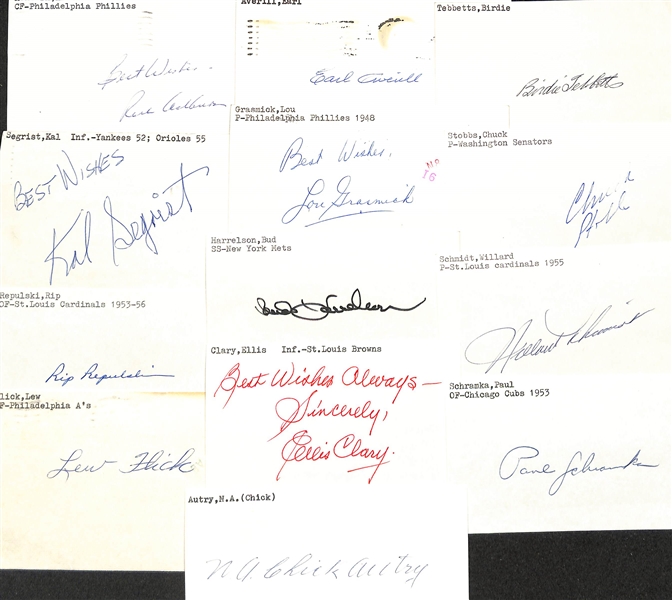 CF-Philadelphia Phillies
Best Wishes
Rich Ashburn
Averill,Earl
Earl Averill
Tebbetts,Birdie
Birdie Tebbetts
Segrist,Kal Inf.-Yankees 52; Orioles 55
Best Wishes
Kal Segrist
Grasmick,Lou
P-Philadelphia Phillies 1948
Best Wishes,
Lou Grasmick
16
Stobbs, Chuck
P-Washington Senators
Chuck
Stobbs
Harrelson,Bud
SS-New York Mets
Bud Harrelson
Schmidt,Willard
P-St.Louis cardinals 1955
Willard Schmidt
Repulski,Rip
OF-St.Louis Cardinals 1953-56
Rip Repulski
Clary,Ellis Inf.-St.Louis Browns
Best Wishes Always—
Sincerely,
Ellis Clary.
Schramka,Paul
OF-Chicago Cubs 1953
Paul Schramka
lick,Lew
F-Philadelphia A's
Lew Flick
Autry,N.A.(Chick)
N A Chick Autry